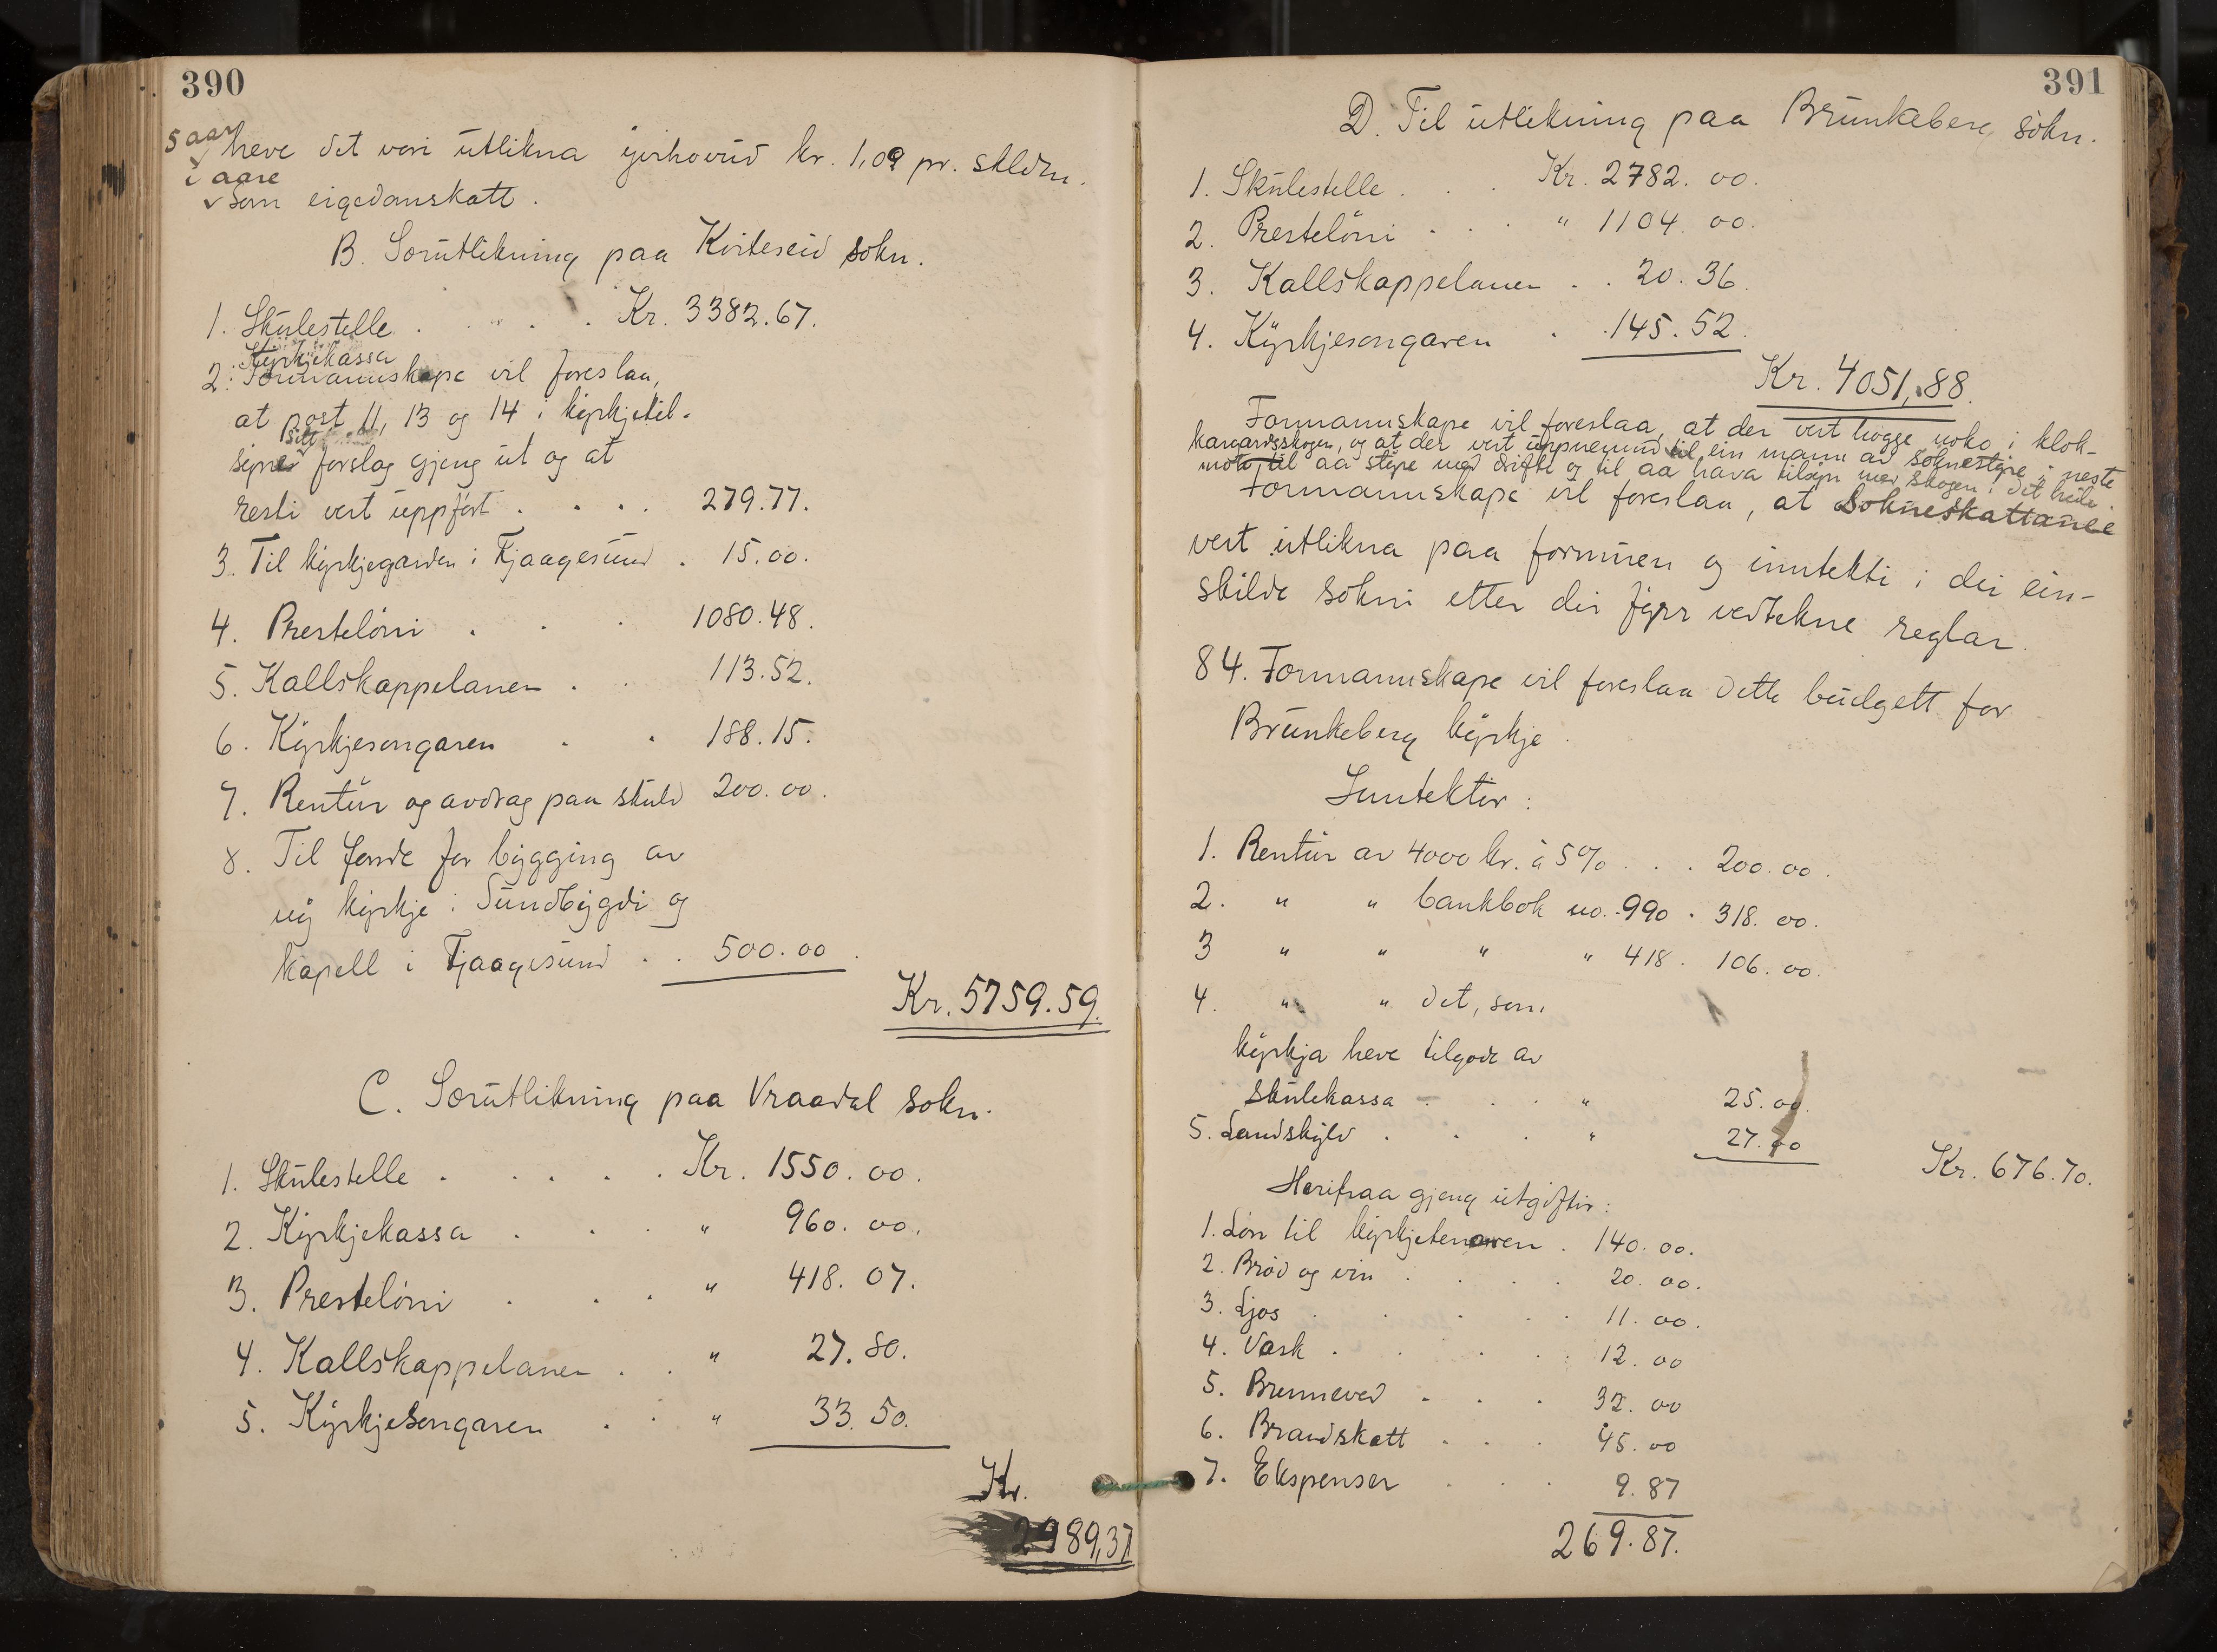 390
5 aar heve det vori utlikna yvirhovud kr. 1,09 pr. skldm.
i aare
som eigedomskatt.
B. Serutlikning paa Kviteseid sokn.
1. Skulestelle . . . . Kr. 3382.67.
Kyrkjekassa
2. Formannskape vil foreslaa,
at post 11, 13 og 14 i kyrkjetil-
sitt
syner forslag gjeng ut og at
resti vert uppført . . . . 279.77.
3. Til kyrkjegarden i Fjaagesund . 15.00.
4. Presteløni . . . 1080.48.
5. Kallskappelanen . . 113.52.
6. Kyrkjesongaren . . 188.15.
7. Rentur og avdrag paa skuld 200.00.
8. Til fonde for bygging av
ny kyrkje i Sundbygdi og
kapell i Fjaagesund . . 500.00.
Kr. 5759.59.
C. Serutlikning paa Vraadal sokn.
1. Skulestelle . . . . . Kr. 1550.00.
2. Kyrkjekassa . . . " 960.00.
3. Presteløni . . . " 418.07.
4. Kallskappelanen . . " 27.80.
5. Kyrkjesongaren . . " 33.50.
Kr.
2989,37
391
D. Til utlikning paa Brunkeberg sokn.
1. Skulestelle . . . Kr. 2782.00.
2. Presteløni . . . " 1104.00.
3. Kallskappelanen . . 20.36.
4. Kyrkjesongaren . . 145.52.
Kr. 4051,88.
Formannskape vil foreslaa, at der vert hogge noko i klok-
kargardsskogen, og at der vert uppnemnd til ein mann av soknestyre i neste
møte, til aa styre med drifti og til aa hava tilsyn med skogen i det heile.
Formannskape vil foreslaa, at Sokneskattane
vert utlikna paa formuen og inntekti i dei ein-
skilde sokni etter dei fyrr vedtekne reglar.
84. Formannskape vil foreslaa dette budgett for
Brunkeberg kyrkje.
Inntektir:
1. Rentur av 4000 kr. à 5% . . . 200.00.
2. " " bankbok no. 990 . 318.00.
3 " " " " 418 . 106.00.
4. " " det, som
kyrkja heve tilgode av
Skulekassa . . . " 25.00.
5. Landskyld . . . " 27.70
Kr. 676.70.
Herifraa gjeng utgiftir:
1. Løn til kyrkjetenaren . 140.00.
2. Brød og vin . . . . 20.00.
3. Ljos . . . . . 11.00.
4. Vask . . . . 12.00
5. Brenneved . . . 32.00
6. Brandskatt . . . 45.00
7. Ekspenser . . . 9.87
269.87.